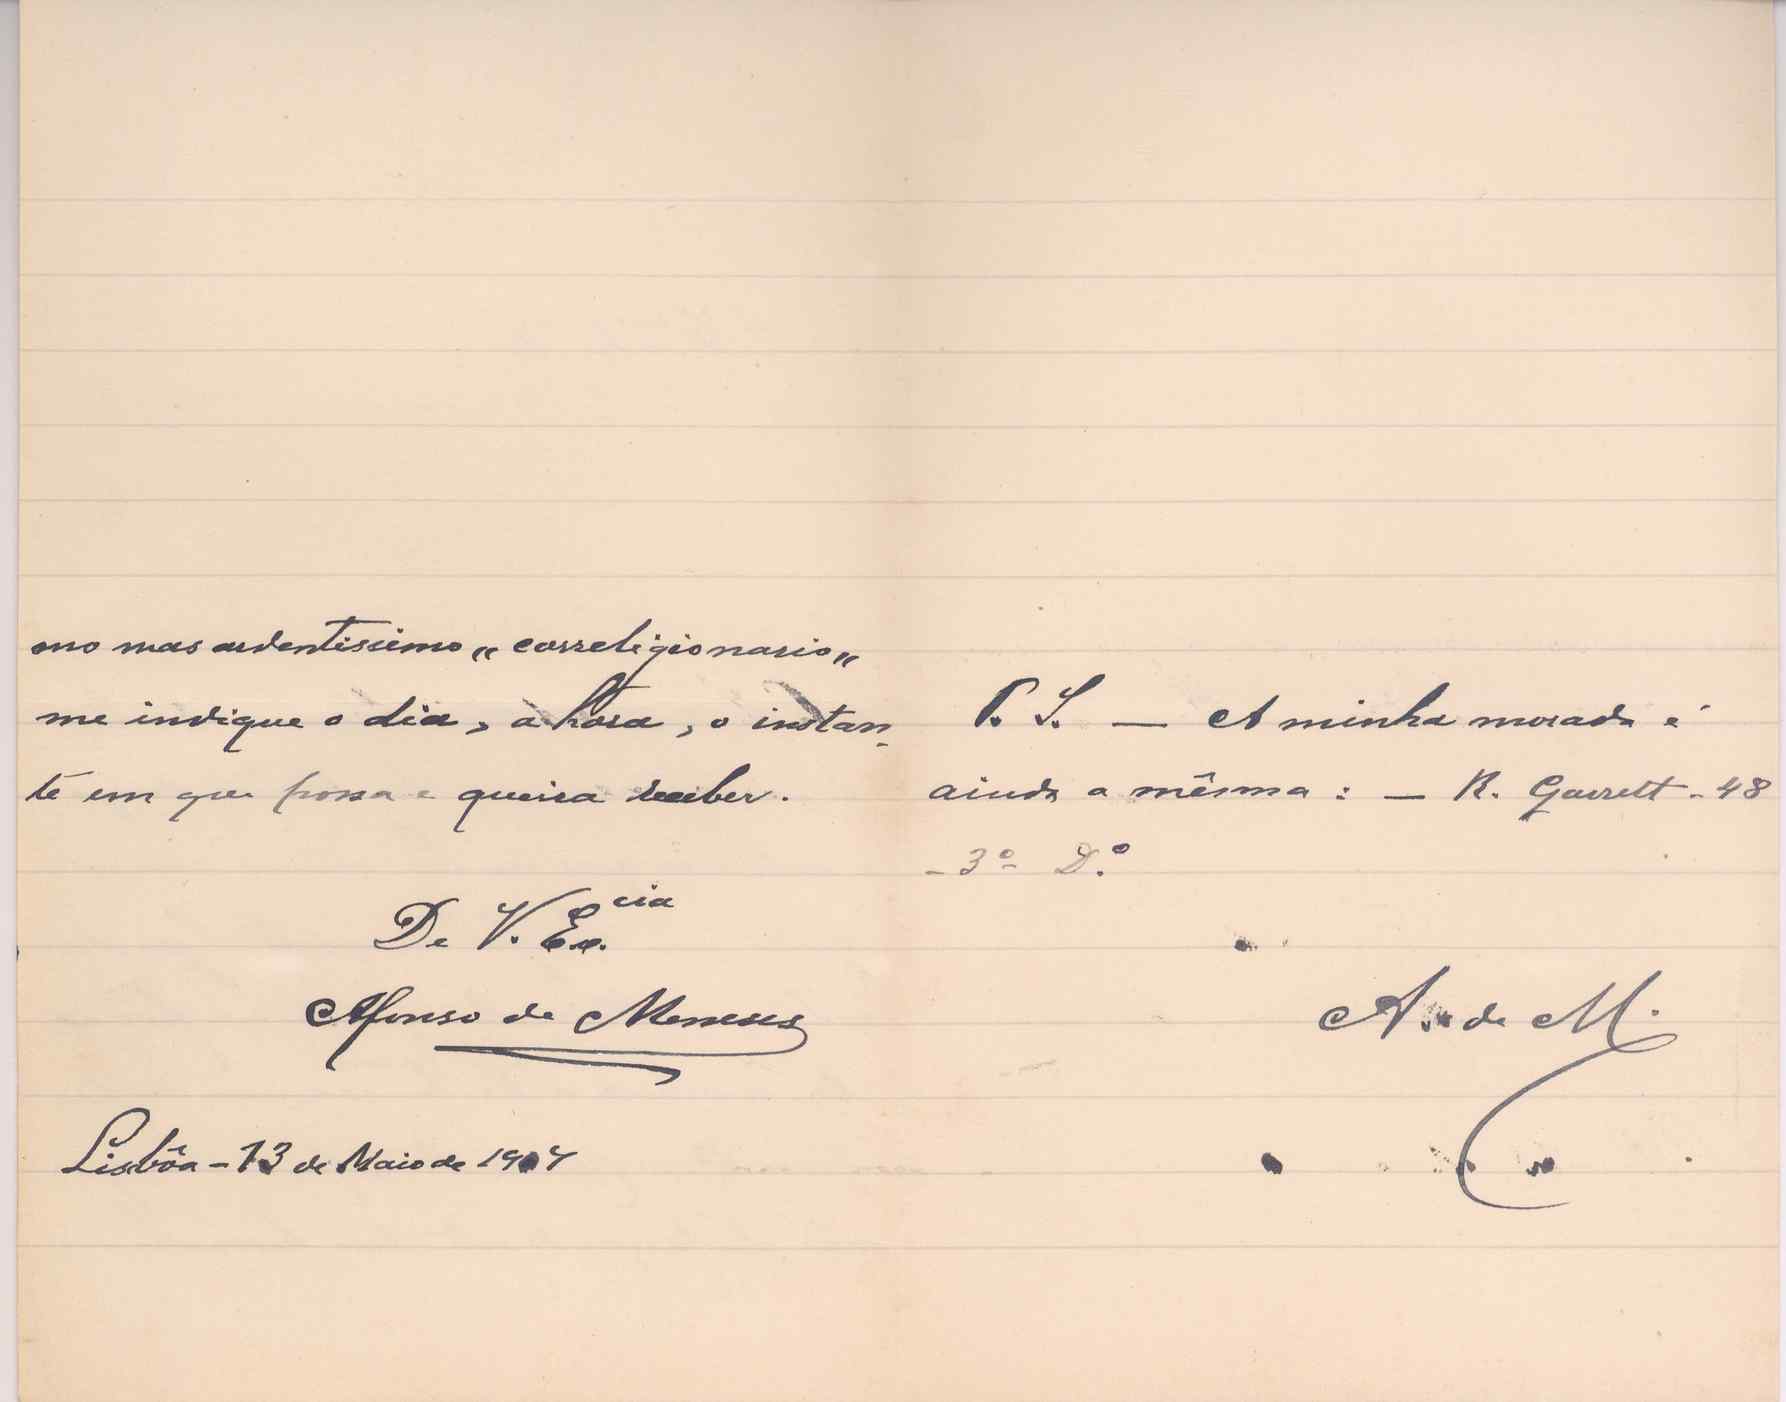 mo mas ardentissimo „ correligionario „
me indique o dia, a hora, o instan-
te em que possa e queira receber.
De V. Ex.cia
Afonso de Meneses
Lisbôa - 13 de Maio de
P. S. — A minha morada é
ainda a mêsma : — R. Garrett - 48
- 3º D.º
A. de M.